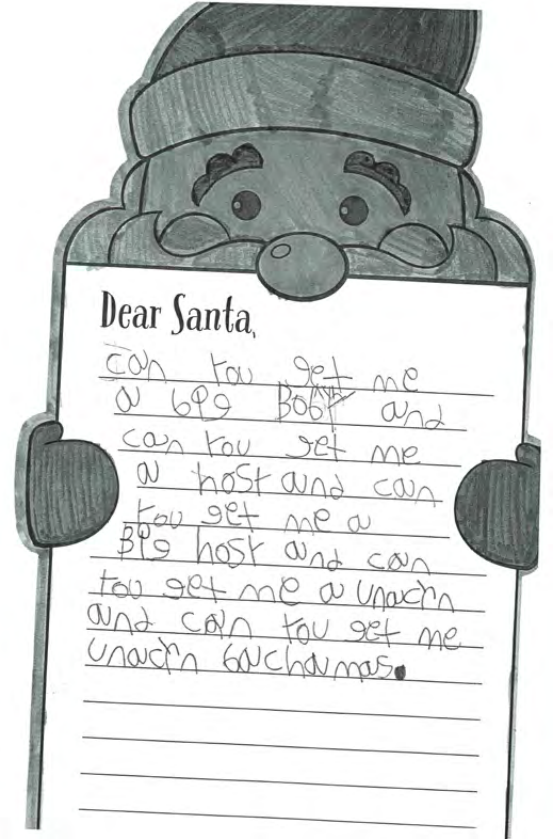 Dear Santa,
can You get me
a big BoBY and
can You get me
a host and can
You get me a
Big host and can
You get me a unacrn
and can You get me
unacrn bachamas.